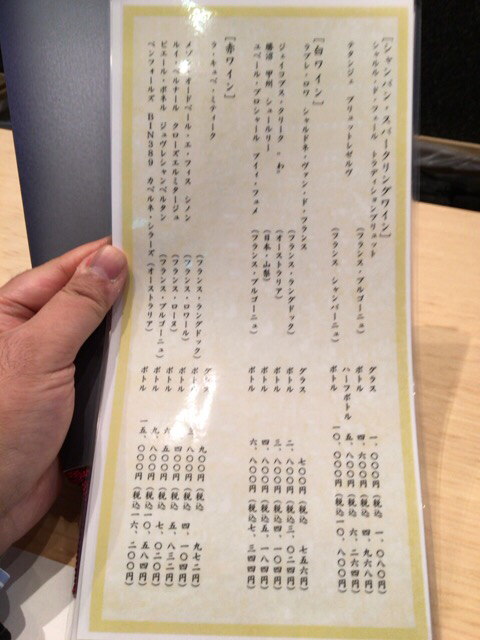 『シャンパン・スパークリングワイン』
シャルル・ド・フェール トラディションブリュット (フランス・ブルゴーニュ) グラス 一、〇〇〇円 (税込 一、〇八〇円)
ボトル 四、六〇〇円 (税込 四、九六八円)
タタンジェ ブリュットレゼルヴ (フランス シャンパーニュ) ハーフボトル 五、八〇〇円 (税込 六、二六四円)
ボトル 一〇、〇〇〇円 (税込一〇、八〇〇円)
『白ワイン』
ラブレ・ロワ シャルドネ・ヴァン・ド・フランス (フランス・ラングドック) グラス 七〇〇円 (税込 七五六円)
ボトル 二、八〇〇円 (税込三、〇二四円)
ジェイコブス・クリーク わ (オーストラリア) ボトル 三、八〇〇円 (税込四、一〇四円)
勝沼 甲州 シュールリー (日本・山梨) ボトル 四、八〇〇円 (税込五、一八四円)
ユベール・ブロシャール プイィ・フュメ (フランス・ブルゴーニュ) ボトル 六、八〇〇円 (税込七、三四四円)
『赤ワイン』
ラ・キュベ・ミティーク (フランス・ラングドック) グラス 九〇〇円 (税込 九七二円)
ボトル 八〇〇円 (税込 四、一〇四円)
メゾン・オードベール・エ・フィス シノン (フランス・ロワール) ボトル 四〇〇円 (税込 五、八三二円)
ルイ・ベルナール クローズエルミタージュ (フランス・ローヌ) ボトル 五〇〇円 (税込 七、〇二〇円)
ピエール・ポネル ジュヴレシャンベルタン (フランス・ブルゴーニュ) ボトル 九、八〇〇円 (税込一〇、五八四円)
ペンフォールズ BIN389 カベルネ・シラーズ (オーストラリア) ボトル 一五、〇〇〇円 (税込一六、二〇〇円)